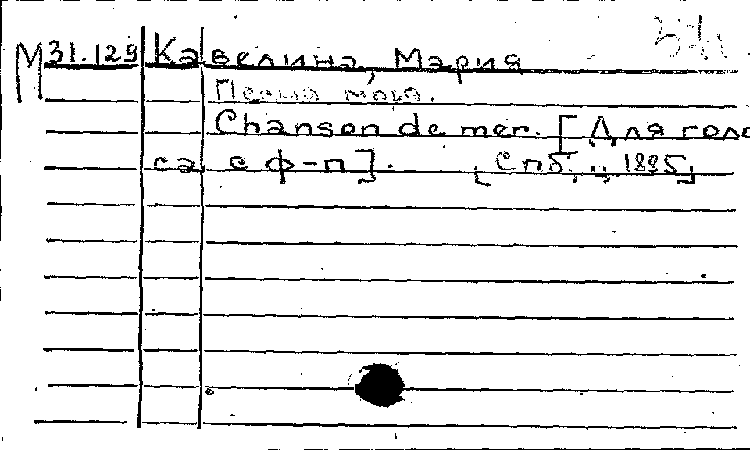 М 31.129 Кавелина, Мария
Песня моря.
Chanson de mer. [Для голо
са с ф-п]. [Спб., ц. 1895]